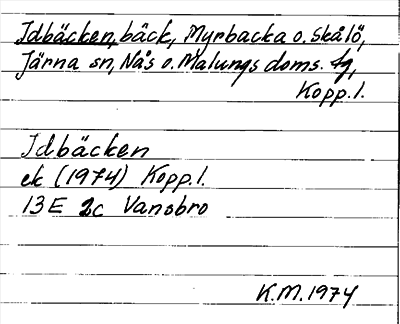 Idbäcken, bäck, Myrbacka o. Skålö,
Järna sn, Nås o. Malungs doms. tg,
Kopp. l.
Idbäcken
ek (1974) Kopp. l.
13E 2c Vansbro
K.M. 1974